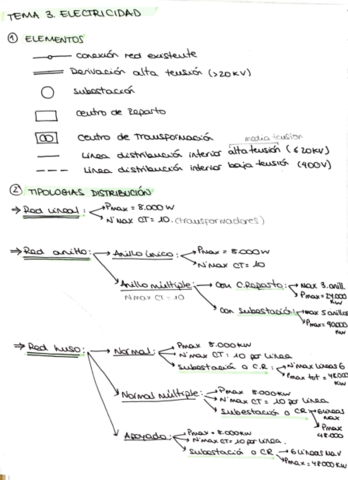 TEMA 3. ELECTRICIDAD
① ELEMENTOS
conexión red existente
Derivación alta tensión (>20KV)
Subestación
Centro de Reparto
Centro de Transformación
media tensión
Línea distribución interior alta tensión (≤20KV)
Línea distribución interior baja tensión (400V)
② TIPOLOGIAS DISTRIBUCIÓN
⇒ Red Lineal: → Pmax = 8.000 kW
→ N°max CT = 10. (transformadores)
⇒ Red anillo: → Anillo único: → Pmax = 8.000 kW
→ N°max CT = 10
→ Anillo múltiple: → con C.Reparto: → max 3. anill.
N max CT = 10
→ Pmax = 24.000 kW
→ con Subestación: → max 5 anillos
→ Pmax = 40.000 kW
⇒ Red huso: → Normal: → Pmax 8.000 kW
→ N°max CT = 10 por línea
→ Subestación o C.R: → N°max líneas 6
→ Pmax tot = 48.000 kW
→ Normal Múltiple: → Pmax 8.000 kW
→ N°max CT = 10 por línea
→ Subestación o CR → 6 líneas max
→ Pmax 48.000
→ Apoyado: → Pmax = 8.000 kW
→ N°max CT = 10 por línea.
→ Subestación o CR → 6 líneas max
→ Pmax = 48.000 kW